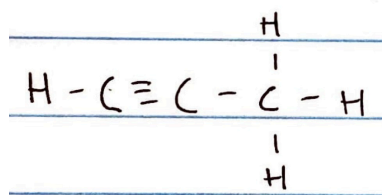 H
|
H - C ≡ C - C - H
|
H